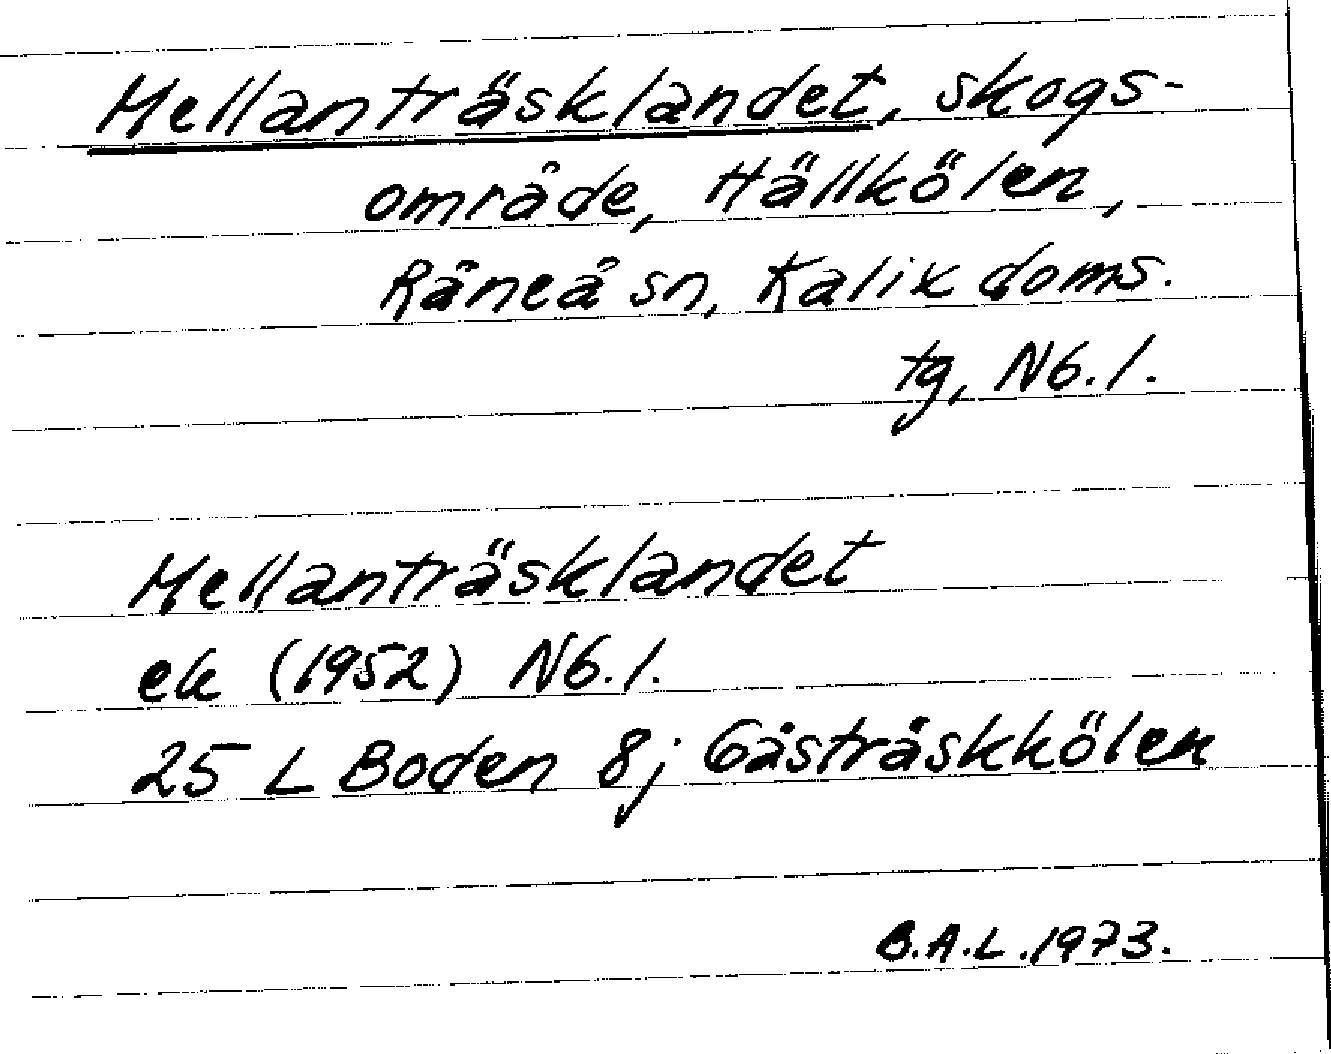 Mellanträsklandet, skogs-
område, Hällkölen,
Råneå sn, Kalix doms.
tg, Nb.l.
Mellanträsklandet
ek (1952) Nb.l.
25 L Boden 8j Gåsträskkölen
B.A.L. 1973.